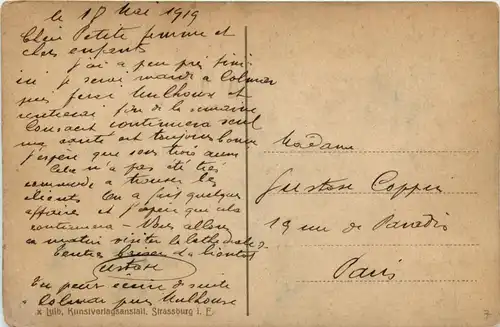 le 18 Mai 1919
Chère Petite femme et
chers enfants
j'ai a peu près fini
ici je serai mardi a Colmar
puis ferai Mulhouse et
rentrerai fin de la semaine
continuera seul
ma santé est toujours bonne
j'espère que vous trois aussi
Cela n'a pas été très
commode a trouver les
clients On a fait quelques
affaires et j'espère que cela
continuera - Vous allons
ce matin visiter la Cathédrale
Tendres baisers à bientôt
Gustave
Tu peux écrire de suite
Colmar puis Mulhouse
Luib, Kunstverlagsanstalt, Strassburg i. E.
Madame
Gustave Coppin
19 rue de Paradis
Paris
7